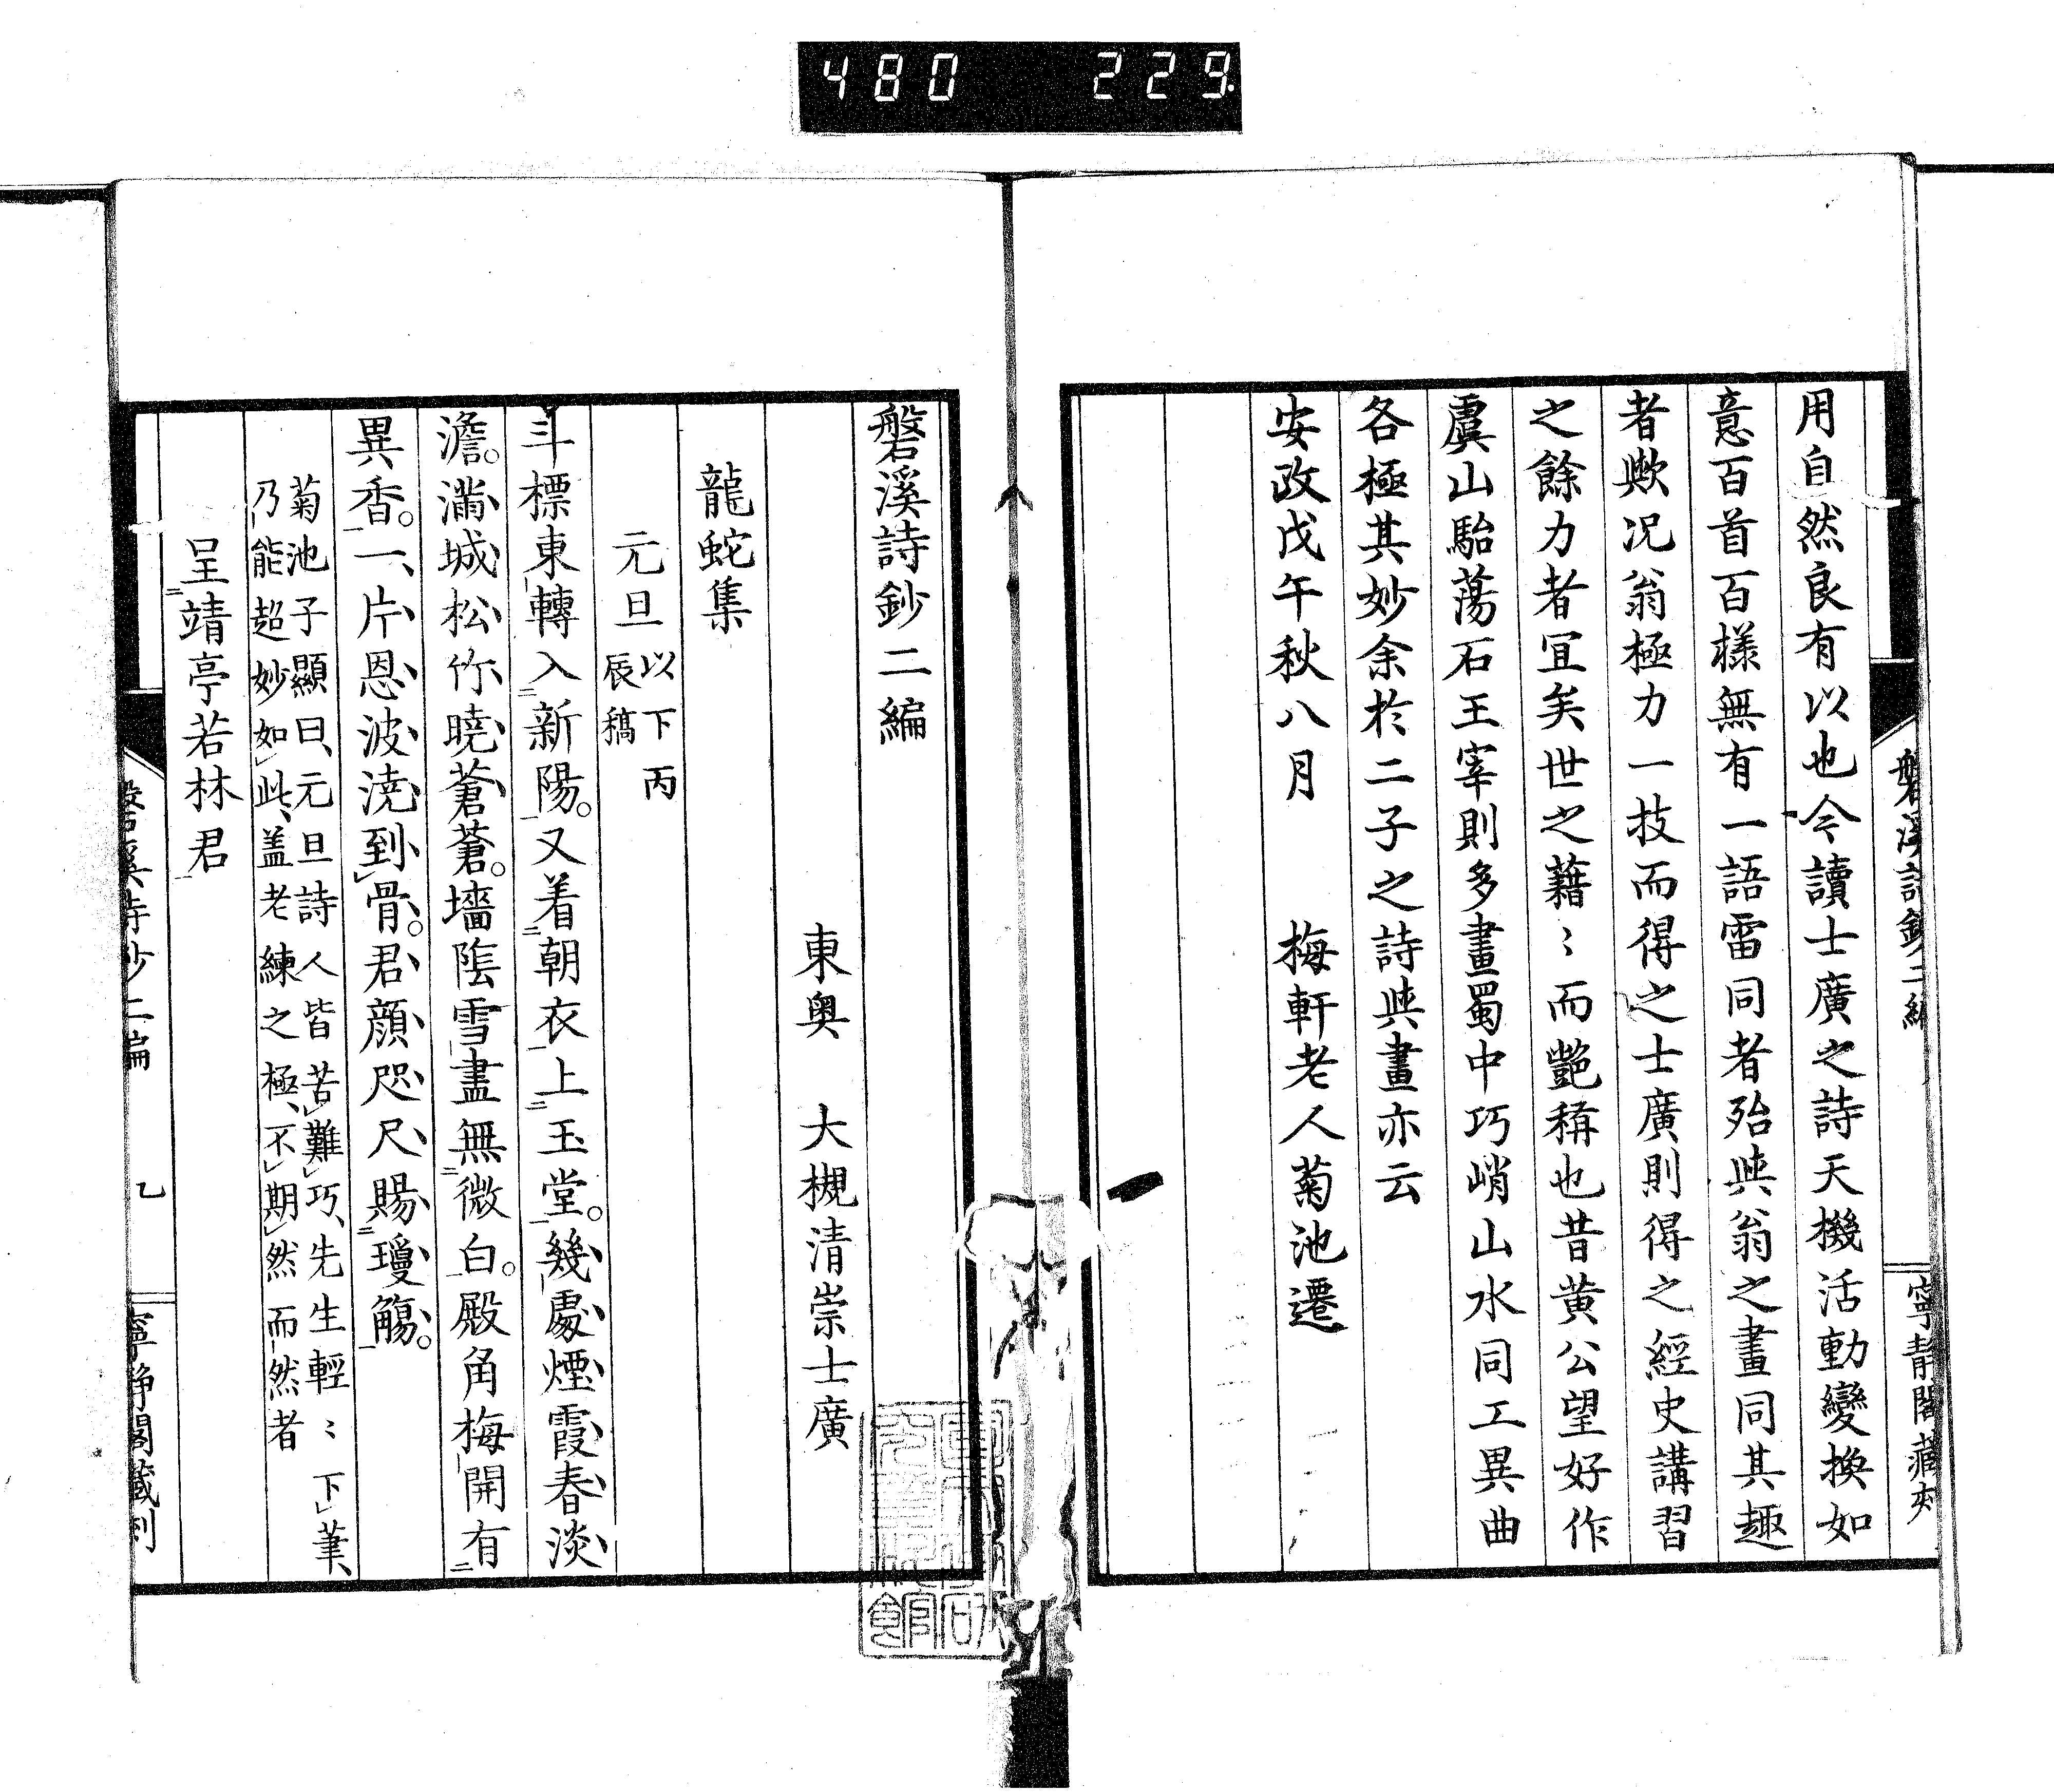 480 229
用自然良有以也今讀士廣之詩天機活動變換如
意百首百樣無有一語雷同者殆與翁之畫同其趣
者歟況翁極力一技而得之士廣則得之經史講習
之餘力者宜矣世之藉〻而艷稱也昔黄公望好作
虞山駘蕩石王宰則多畫蜀中巧峭山水同工異曲
各極其妙余於二子之詩與畫亦云
安政戊午秋八月　梅軒老人菊池遷
磐溪詩鈔二編
寧靜閣藏刻
磐溪詩鈔二編
東奥　大槻清崇士廣
龍蛇集
元旦 以下丙
辰稿
斗標東轉入新陽。又着朝衣上玉堂。幾處煙霞春淡
澹。滿城松竹曉蒼蒼。墻陰雪盡無微白。殿角梅開有
異香。一片恩波澆到骨。君顔咫尺賜瓊觴。
菊池子顯曰、元旦詩人皆苦難巧、先生輕〻下筆、
乃能超妙如此、盖老練之極、不期然而然者
呈靖亭若林君
磐溪詩鈔二編
乙
寧靜閣藏刻